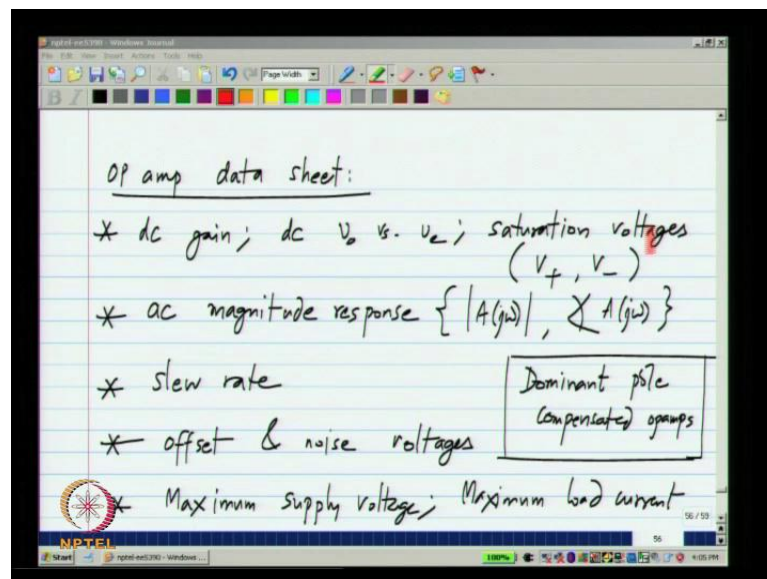 nptel-ee5390 - Windows Journal
File Edit View Insert Actions Tools Help
Page Width
B I
OP amp data sheet:
* dc gain; dc Vo vs. Ve; saturation voltages
(V+, V-)
* ac magnitude response { |A(jω)|, ∠A(jω) }
* slew rate
Dominant pole
compensated opamps
* offset & noise voltages
* Maximum supply voltage; Maximum load current
NPTEL
56 / 59
56
Start
nptel-ee5390 - Windows ...
100%
4:05 PM